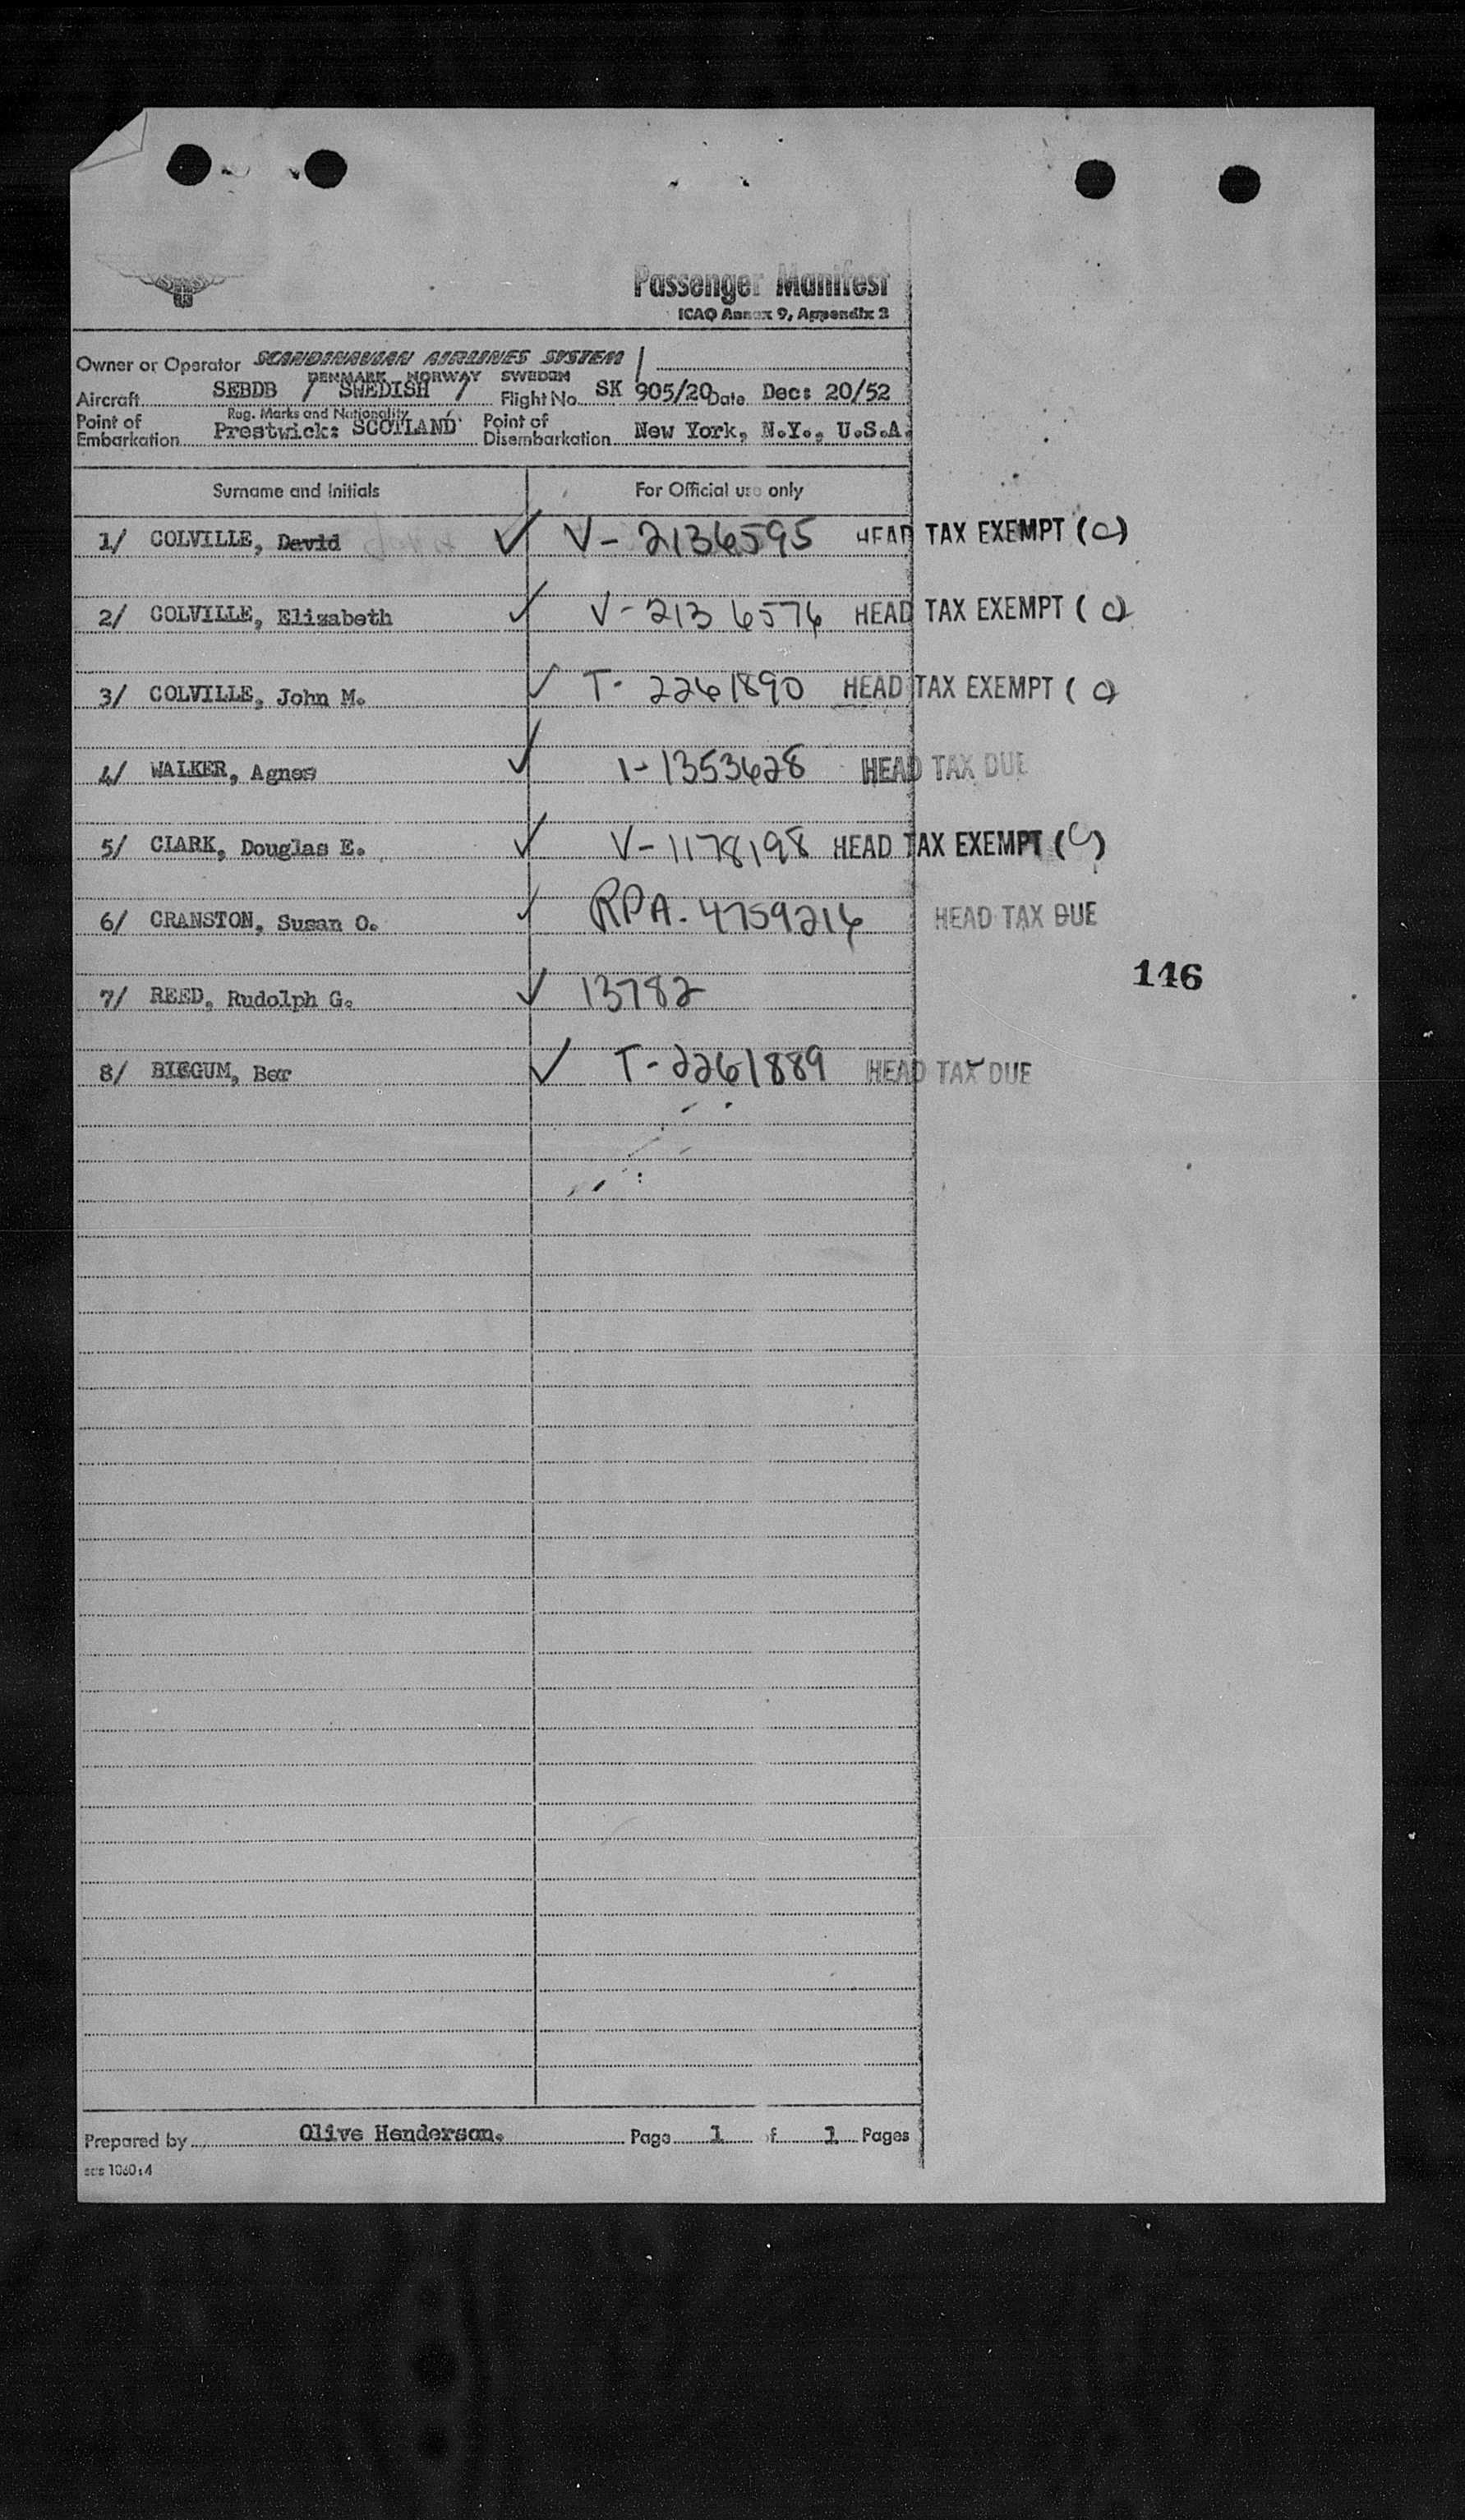 SAS
Passenger Manifest
ICAO Annex 9, Appendix 3
Owner or Operator SCANDINAVIAN AIRLINES SYSTEM
DENMARK NORWAY SWEDEN
Aircraft SEBDB / SWEDISH / Flight No. SK 905/20 Date Dec: 20/52
Reg. Marks and Nationality
Point of Embarkation Prestwick: SCOTLAND Point of Disembarkation New York, N.Y., U.S.A.
Surname and Initials For Official use only
1/ COLVILLE, David ✓ V-2136595 HEAD TAX EXEMPT (C)
2/ COLVILLE, Elizabeth ✓ V-2136576 HEAD TAX EXEMPT (C)
3/ COLVILLE, John M. ✓ T-2261890 HEAD TAX EXEMPT (C)
4/ WALKER, Agnes ✓ 1-1353628 HEAD TAX DUE
5/ CLARK, Douglas E. ✓ V-1178198 HEAD TAX EXEMPT (C)
6/ CRANSTON, Susan O. ✓ RPA-4759216 HEAD TAX DUE
146
7/ REED, Rudolph G. ✓ 13782
8/ BIEGUM, Ber ✓ T-2261889 HEAD TAX DUE
Prepared by Olive Henderson. Page 1 of 1 Pages
sas 1060:4